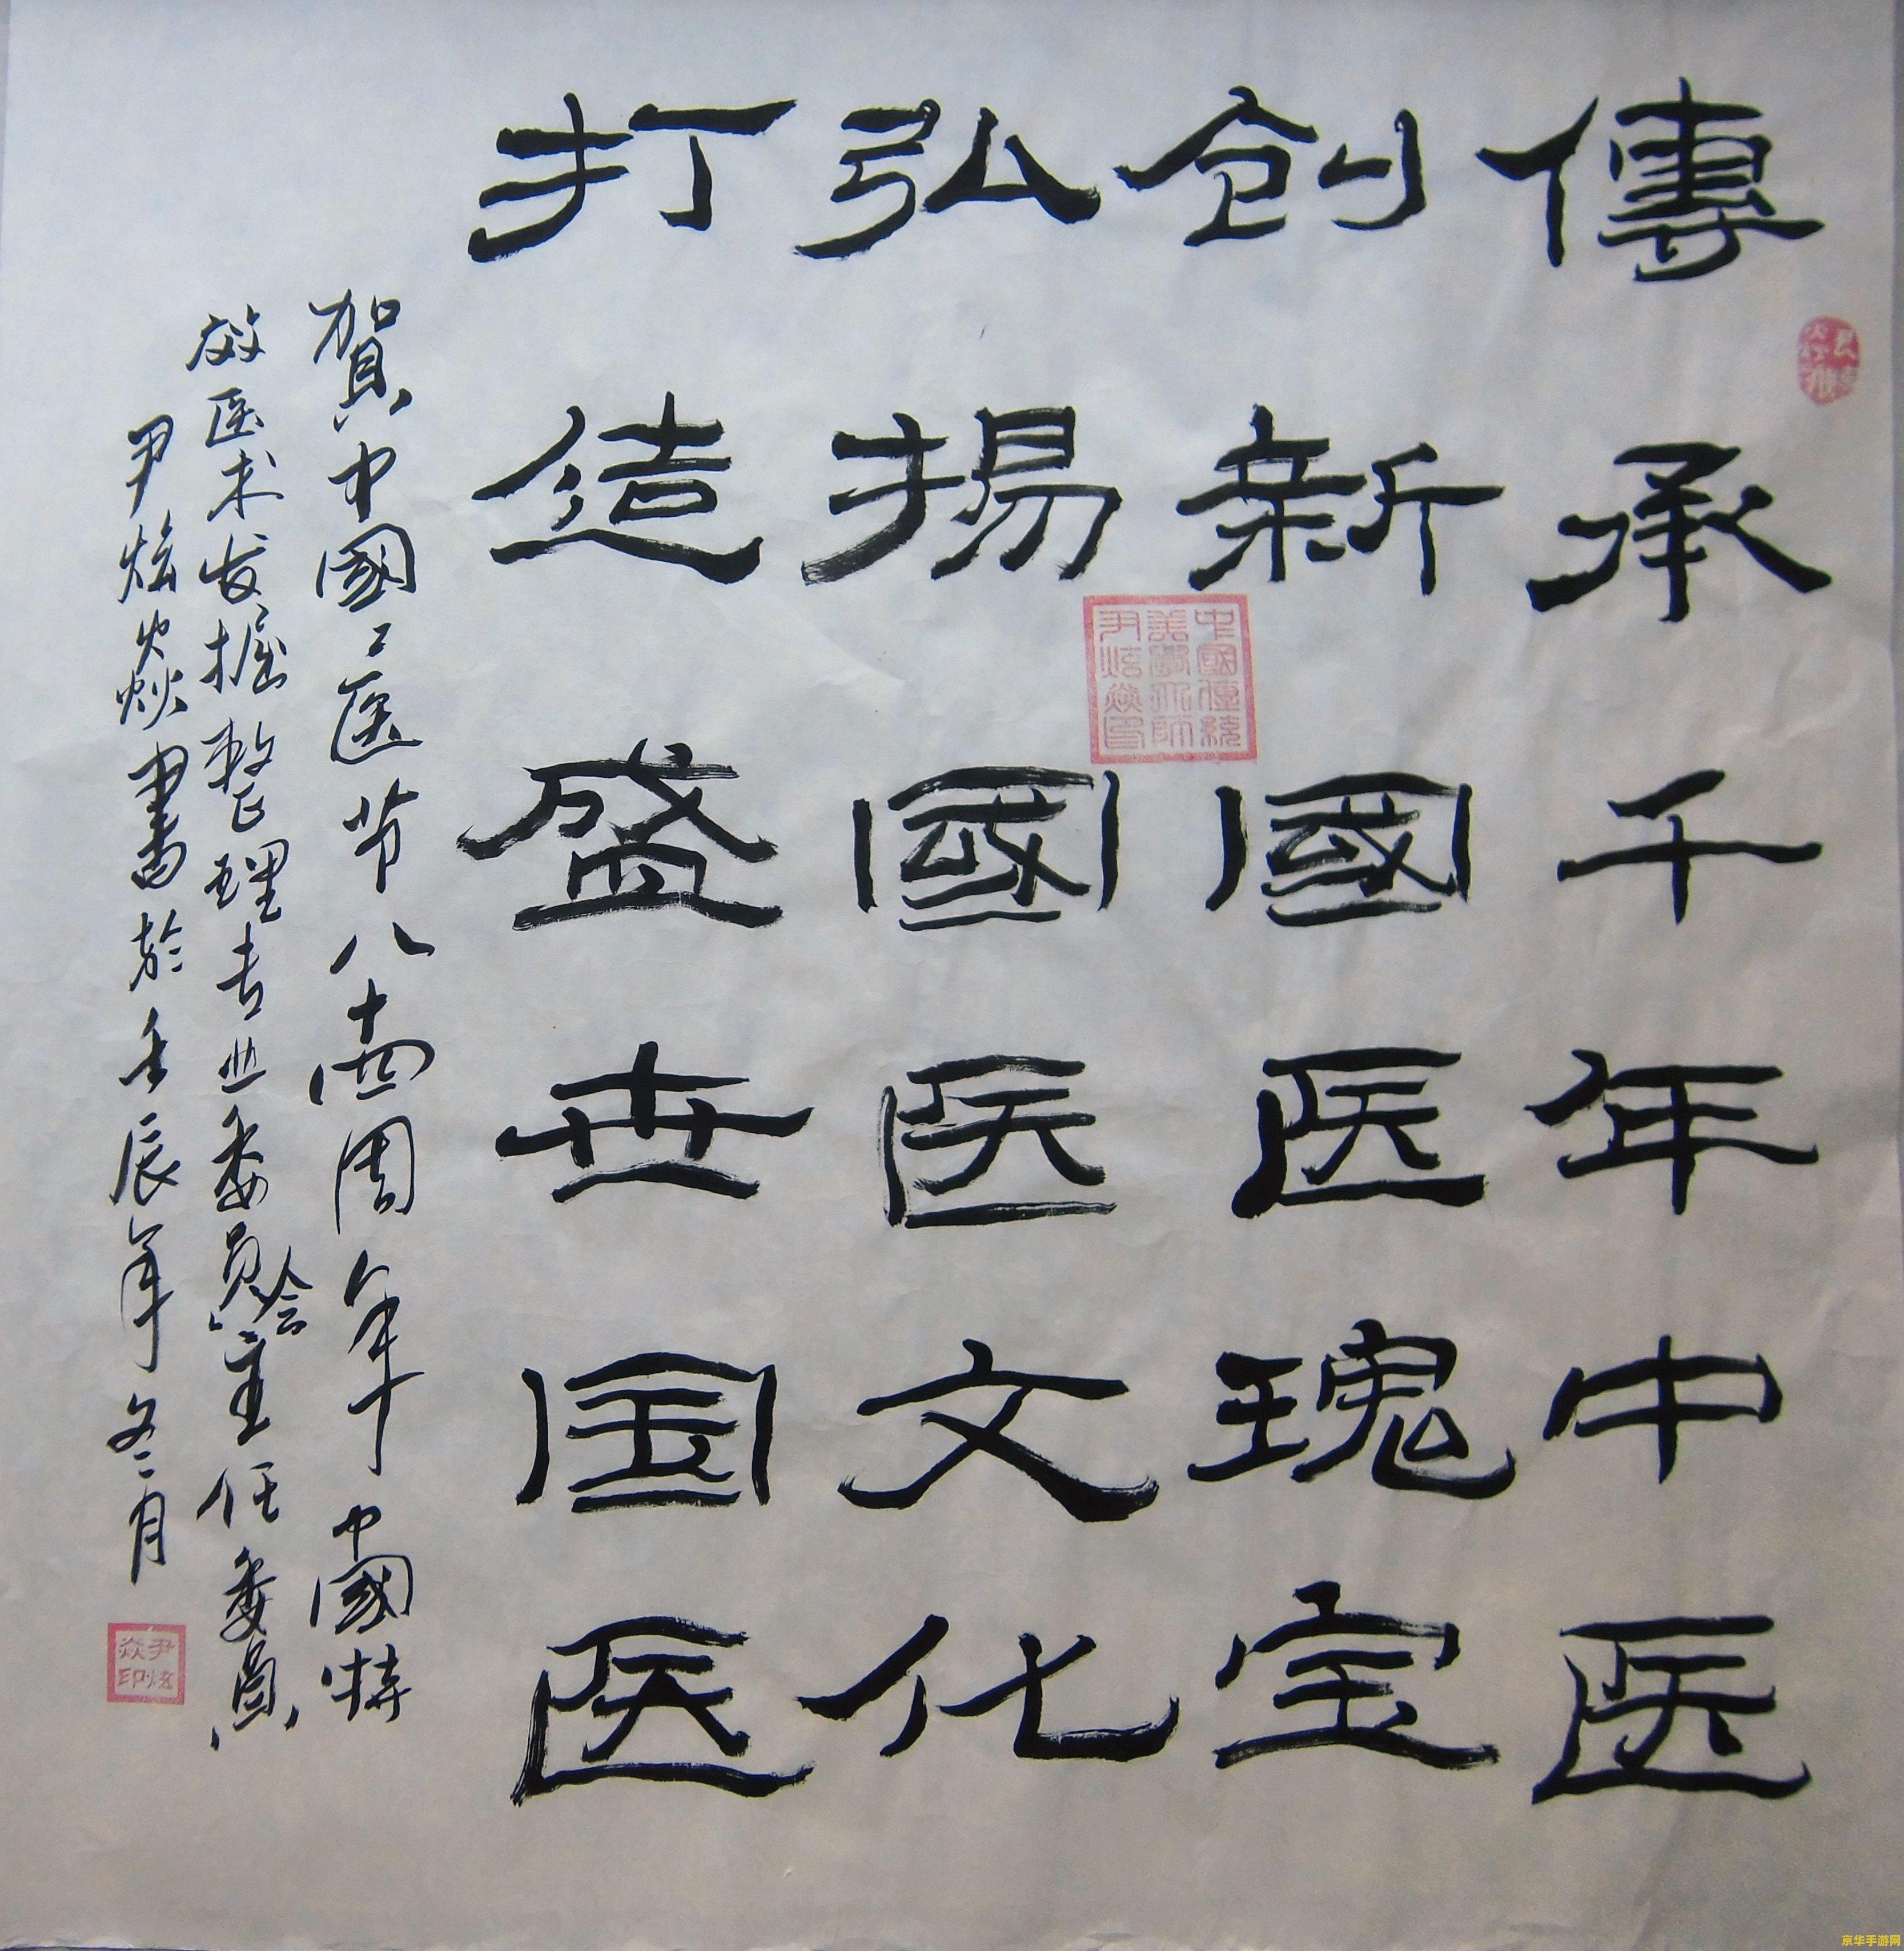 傳承千年中医
创新國医瑰宝
弘揚國医文化
打造盛世国医
賀中國國医节八十四周年中國特
效医术发掘整理专业委員会主任委員
尹炫焱書於壬辰年冬月
中國傳統
美學大師
尹炫焱印
尹炫
焱印
京华手游网